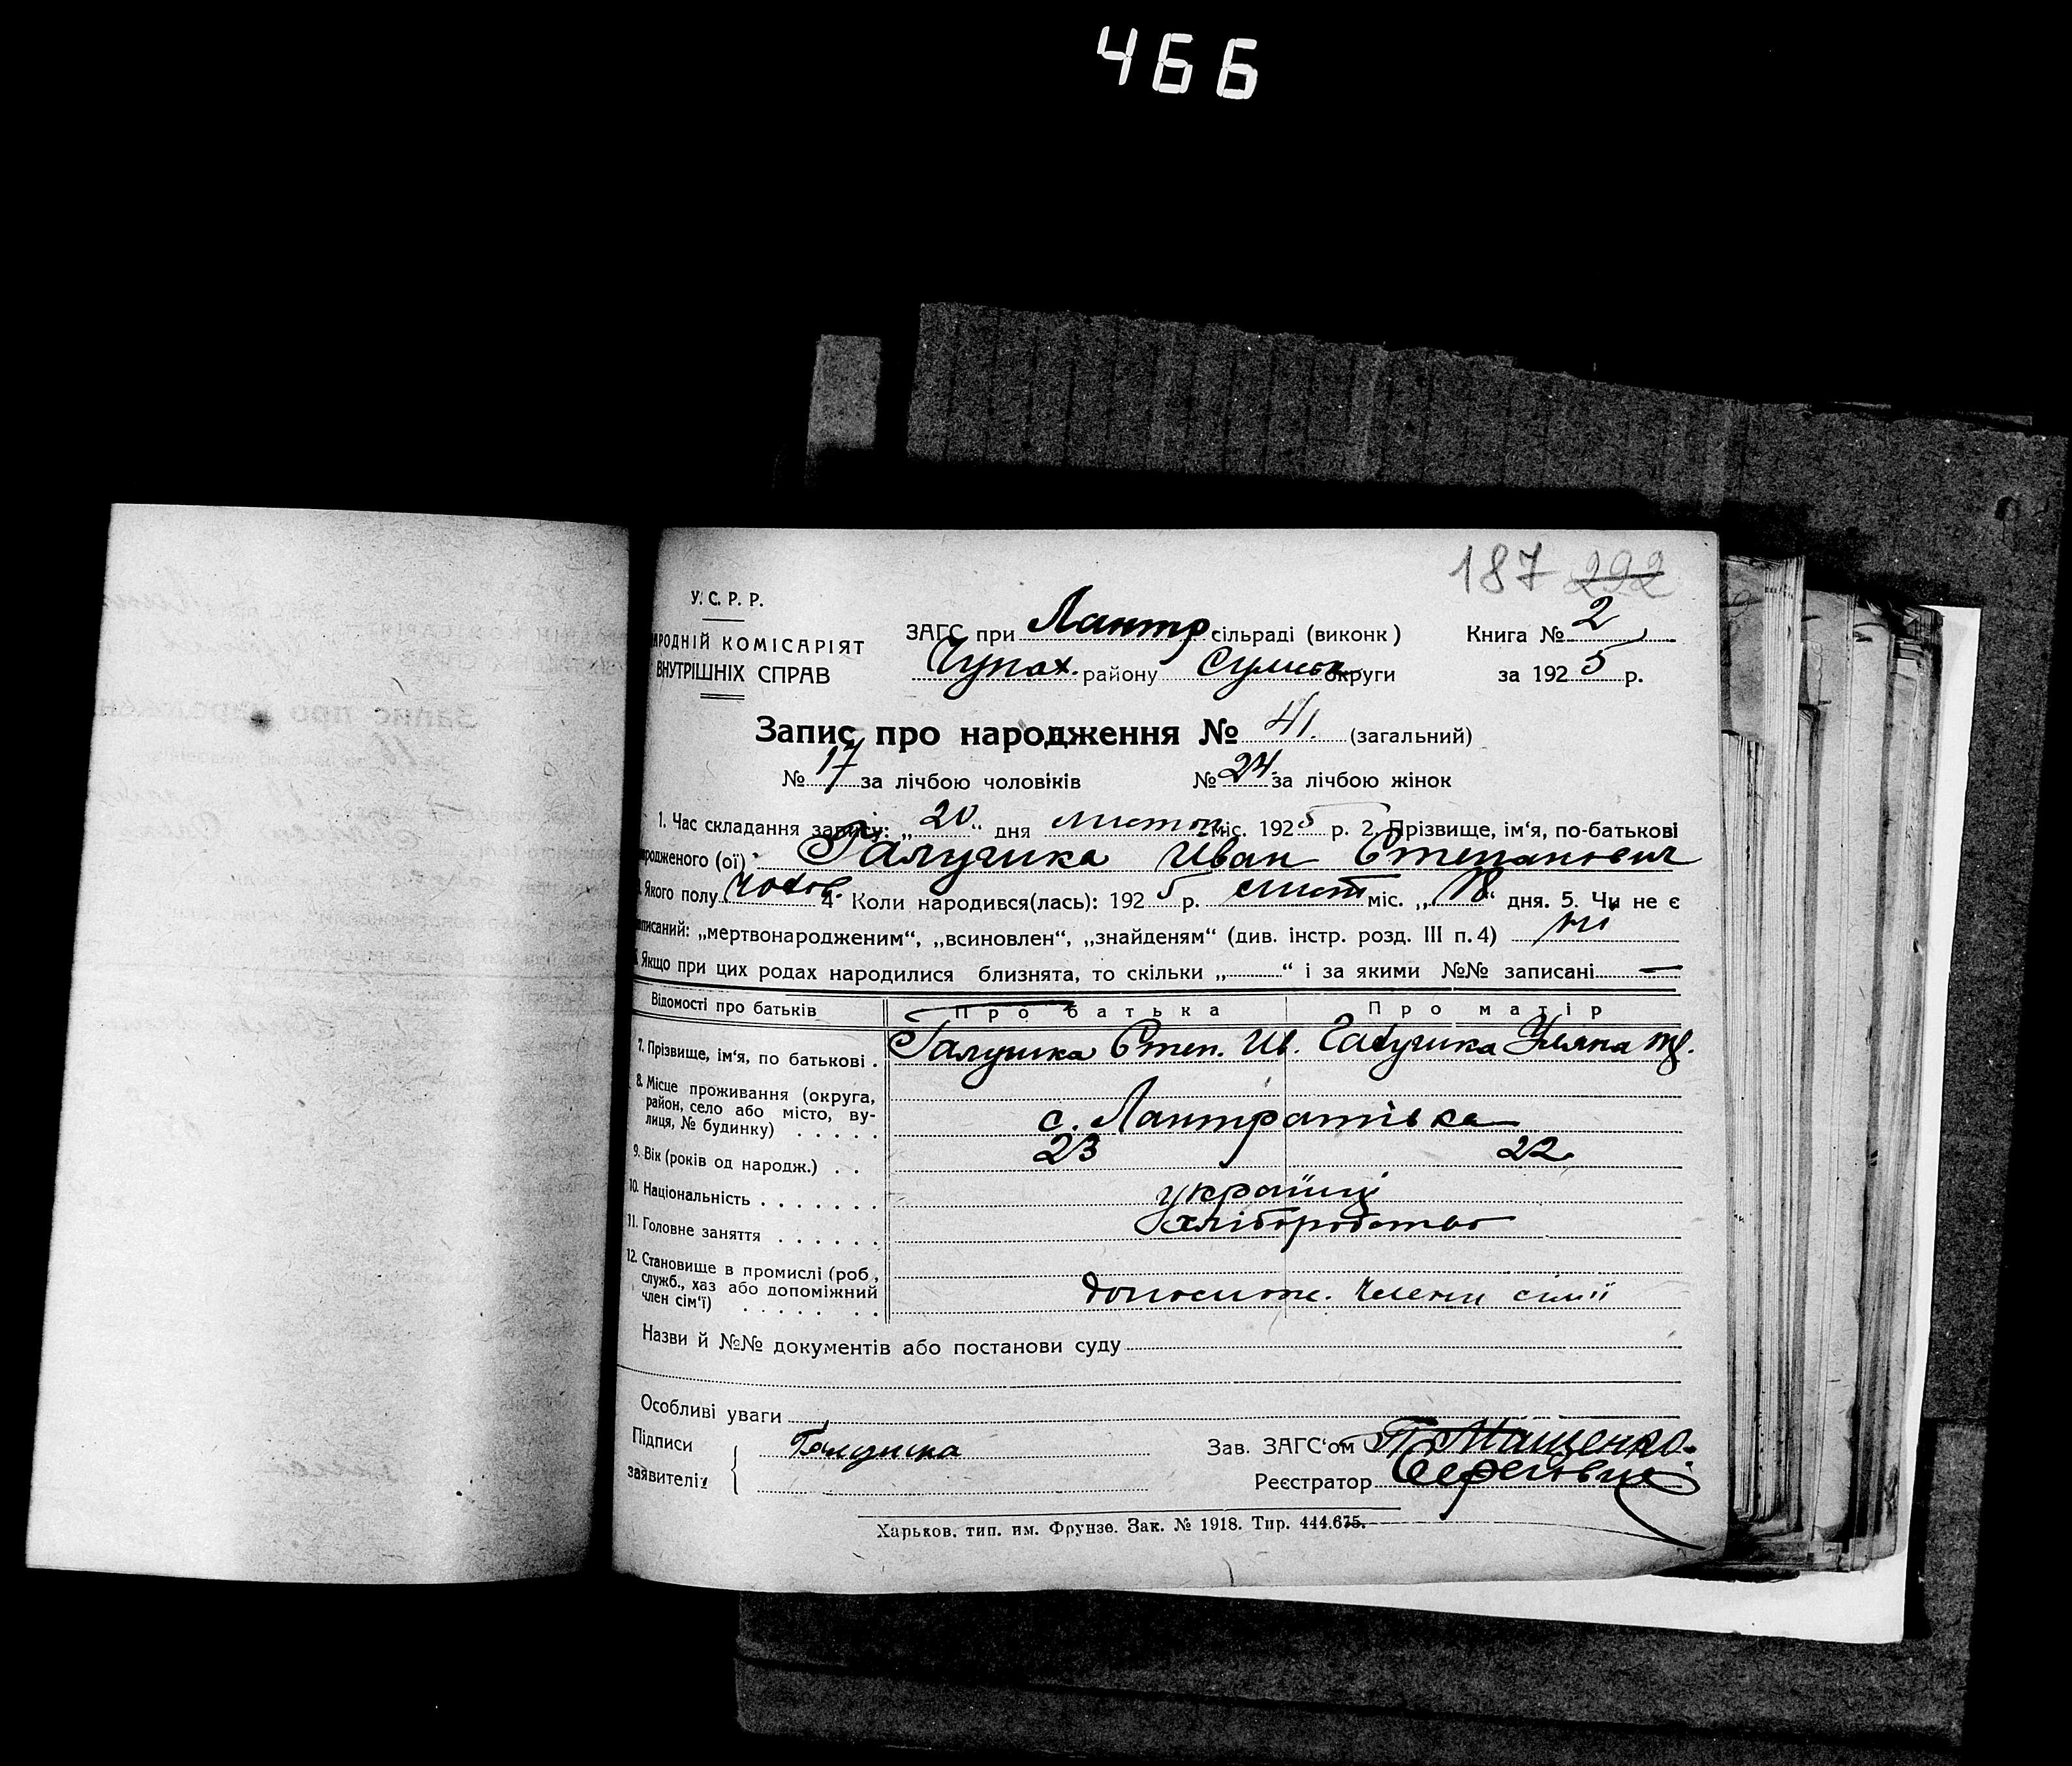 466
187 292
У. С. Р. Р.
АРОДНІЙ КОМІСАРІЯТ
ВНУТРІШНІХ СПРАВ
ЗАГС при Лантр сільраді (виконк)
Чупах. району Сумськ округи
Книга № 2
за 1925 р.
Запис про народження № 41. (загальний)
№ 17 за лічбою чоловіків № 24 за лічбою жінок
1. Час складання запису: „ 20 “ дня листоп міс. 1925 р. 2. Прізвище, ім‘я, по-батькові
родженого (ої) Галушка Иван Степанович
Якого полу чолов. 4 Коли народився(лась): 1925 р. лист міс. „ 18 “ дня. 5. Чи не є
писаний: „мертвонародженим“, „всиновлен“, „знайденям“ (див. інстр. розд. III п. 4) ні
Якщо при цих родах народилися близнята, то скільки „ “ і за якими №№ записані —
Відомості про батьків Про батька Про матір
7. Прізвище, ім‘я, по батькові . Галушка Степ. Ив. Галушка Уляна
8. Місце проживання (округа,
район, село або місто, ву-
лиця, № будинку) . . . . . с. Лантратівка
9. Вік (років од народж.) . . 23 22
10. Національність . . . . . . . українці
11. Головне заняття . . . . . . хліборобство
12. Становище в промислі (роб.,
служб., хаз або допоміжний
член сім‘ї) . . . . . . . члени сим'ї
Назви й №№ документів або постанови суду
Особливі уваги
Підписи
заявителів
Галушка
Зав. ЗАГС‘ом П Мащенко.
Реєстратор
Харьков. тип. им. Фрунзе. Зак. № 1918. Тир. 444.675.